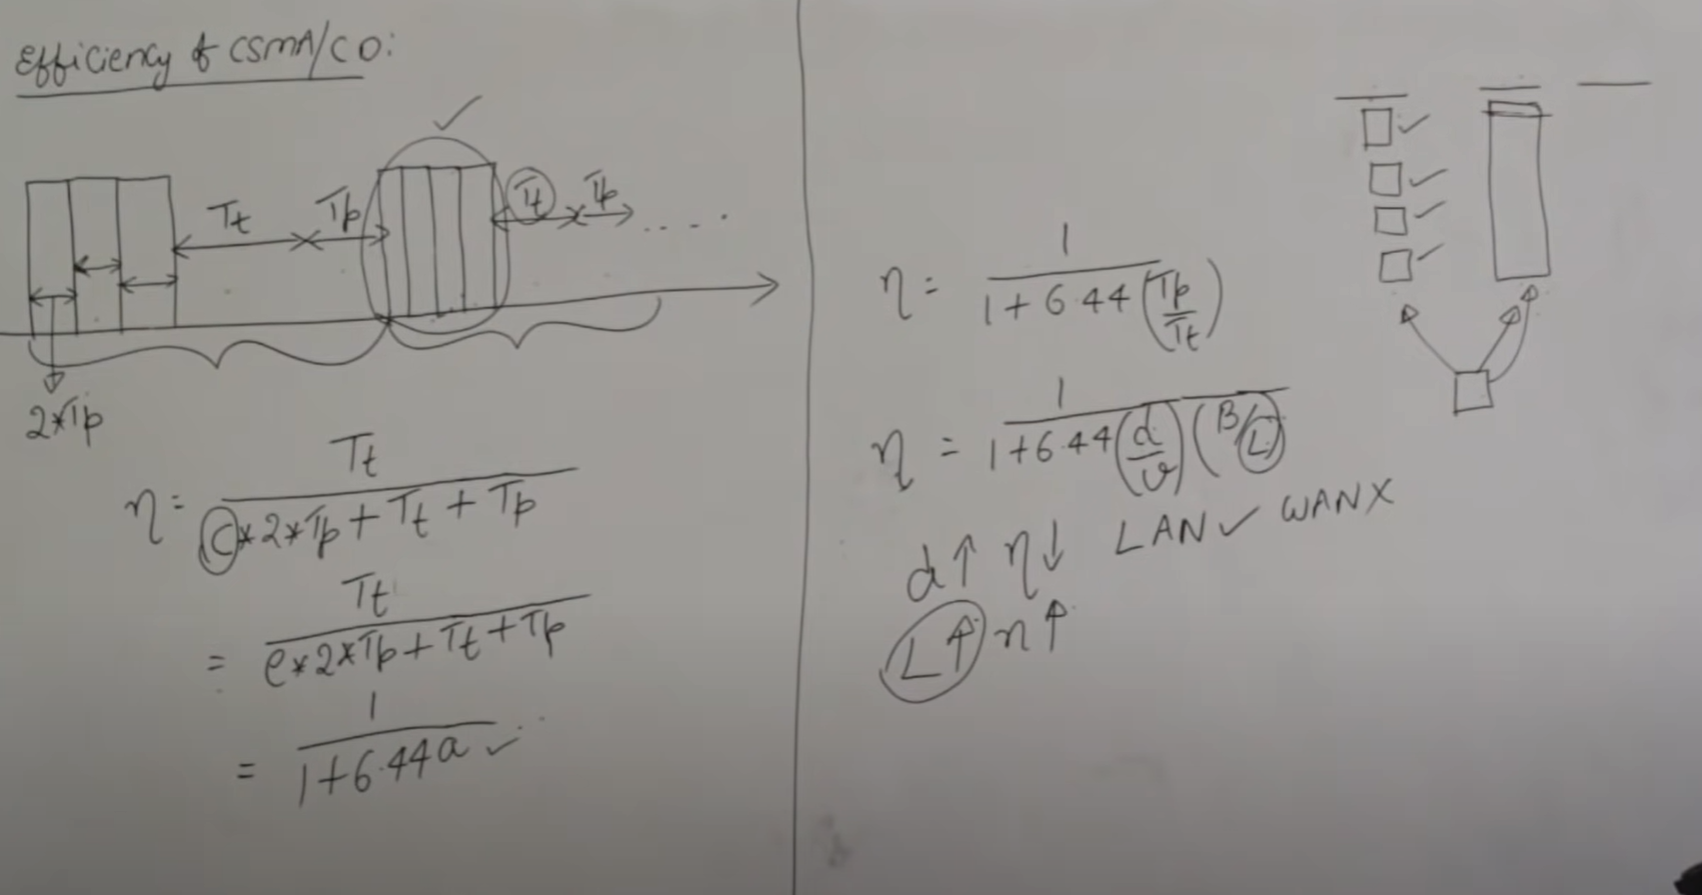 Efficiency of CSMA/CD:
Tt Tp Tt Tp ....
2*Tp
η = Tt / (C*2*Tp + Tt + Tp)
= Tt / (e*2*Tp + Tt + Tp)
= 1 / (1+6.44a) ✓
η = 1 / (1+6.44(Tp/Tt))
η = 1 / (1+6.44(d/v)(B/L))
d↑ η↓ LAN✓ WAN X
L↑ η↑